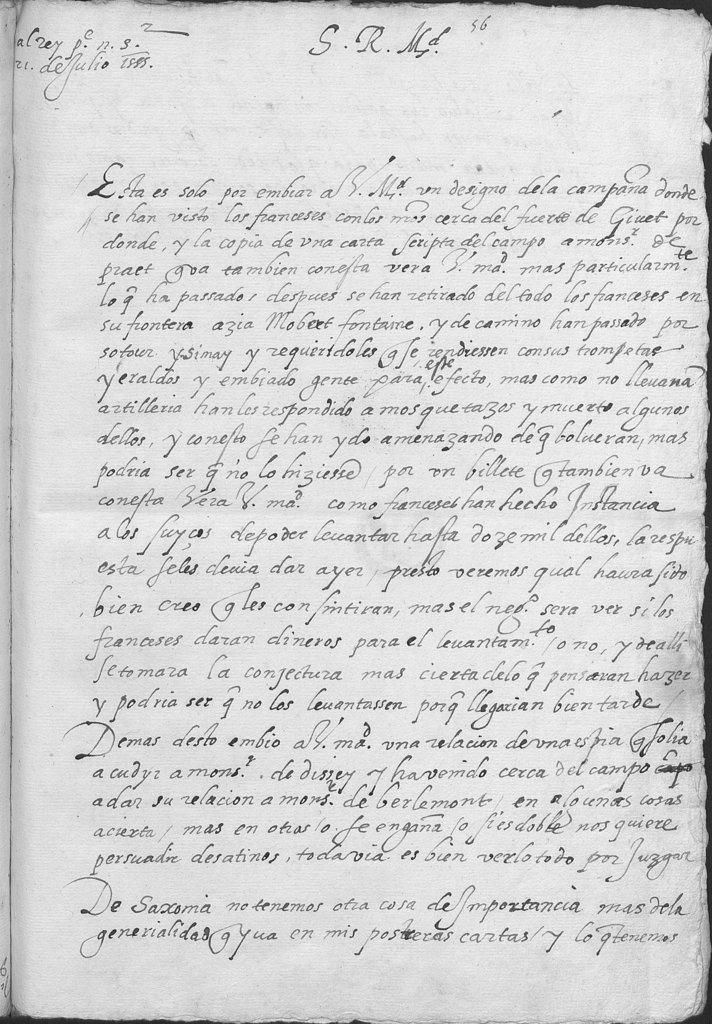 al rey p.e n. s.r 2
21. de Julio 1555.
S. R. M.d
56
Esta es solo por embiar a V. M.d vn designo dela campaña donde
se han visto los franceses conlos nros cerca del fuerte de Givet por
donde, y la copia de vna carta scripta del campo a mons.r de
praet q va tambien conesta vera V. ma.d mas particularm.te
lo q ha passado, despues se han retirado del todo los franceses en
su frontera azia Mobert fontaine, y de camino han passado por
sotour y simay y requeridoles q se rendiessen consus trompetas
y eraldos y embiado gente para este efecto, mas como no lleuauã
artilleria han los respondido a mosquetazos y muerto algunos
dellos, y conesto se han ydo amenazando de q bolueran, mas
podria ser q no lo hiziessẽ / por vn billete q tambien va
conesta Vera V. ma.d como franceses han hecho Instancia
a los suyços depoder leuantar hasta doze mil dellos, la respu
esta seles deuia dar ayer, presto veremos qual haura sido
bien creo q les consintiran, mas el neg.o sera ver si los
franceses daran dineros para el leuantam.to / o no, y de alli
se tomara la conjectura mas cierta delo q pensaran hazer
y podria ser q no los leuantassen porq llegarian bien tarde /
Demas desto embio a V. ma.d vna relacion de vna espia q solia
acudyr a mons.r de dissey y ha venido cerca del campo
a dar su relacion a mons.r de berlemont, en algunas cosas
acierta / mas en otras / o se engaña / o si es doble nos quiere
persuadir desatinos, todavia es bien verlo todo por Juzgar
De Saxonia no tenemos otra cosa de Importancia mas dela
generialidad q yua en mis postreras cartas / y lo q tenemos